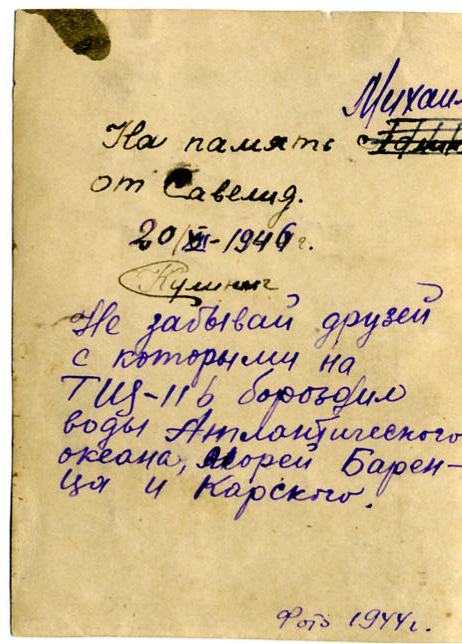 Михаи
На память
от Савелия.
20/VII-1946г.
Не забывай друзей
с которыми на
ТЩ-116 бороздил
воды Атлантического
океана, морей Барен-
ца и Карского.
Фото 1944г.